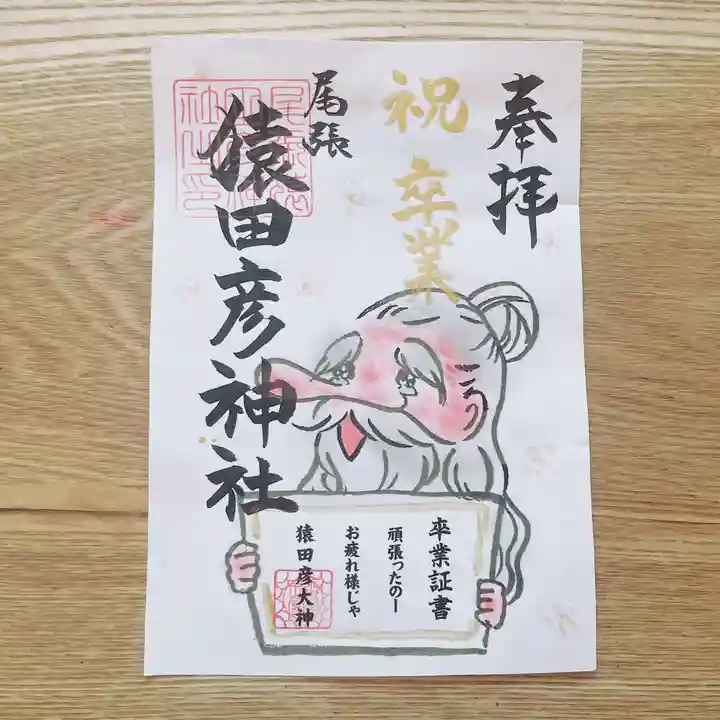 奉拝
祝卒業
尾張
猿田彦神社
卒業証書
頑張ったのー
お疲れ様じゃ
猿田彦大神